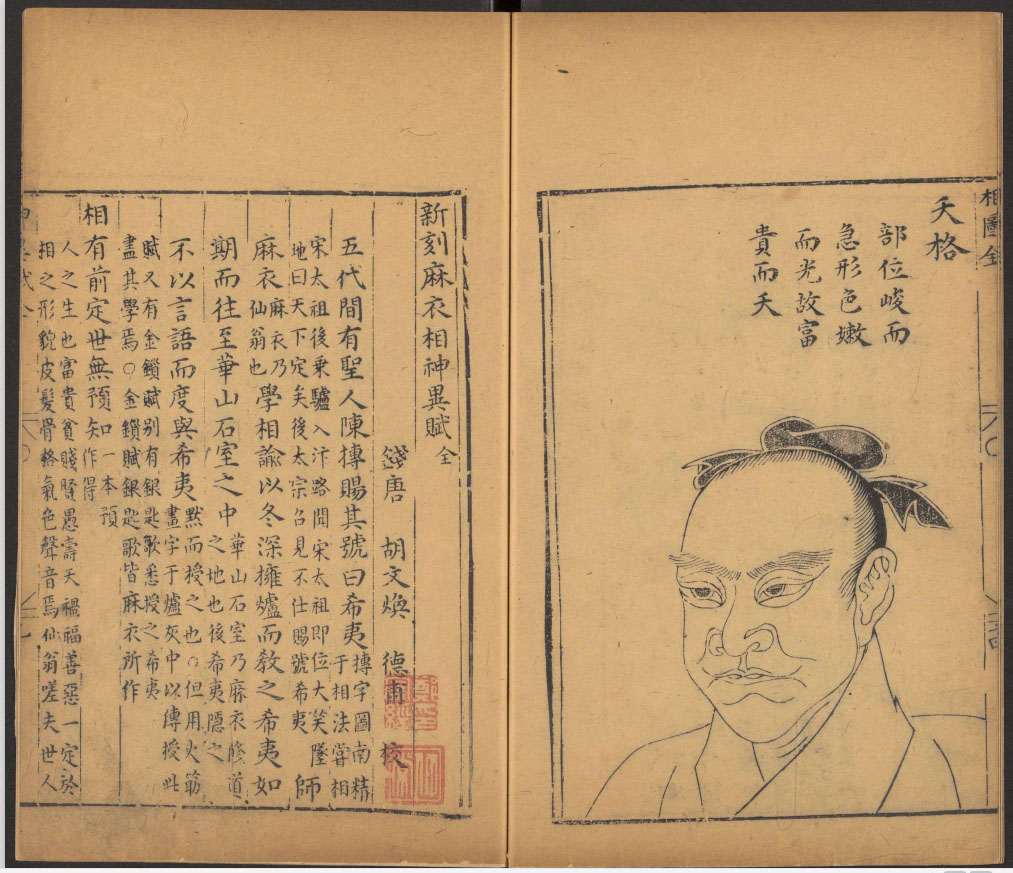 相圖全
夭格
部位峻而
急形色嫩
而光故富
貴而夭
新刻麻衣相神異賦全
錢唐 胡文煥 德甫 校
五代間有聖人陳摶賜其號曰希夷摶字圖南精于相法嘗相
宋太祖後乘驢入汴路聞宋太祖即位大笑墜地曰天下定矣後太宗召見不仕賜號希夷師
麻衣麻衣乃仙翁也學相諭以冬深擁爐而教之希夷如
期而往至華山石室之中華山石室乃麻衣修道之地也後希夷隱之
不以言語而度與希夷默而授之也〇但用火筯畫字于爐灰中以傳授此
賦又有金鎖賦别有銀匙歌悉授之希夷盡其學焉〇金鎖賦銀匙歌皆麻衣所作
相有前定世無預知一本預作得
人之生也富貴貧賤賢愚壽夭禍福善惡一定於
相之形貌皮髮骨格氣色聲音焉仙翁嗟夫世人